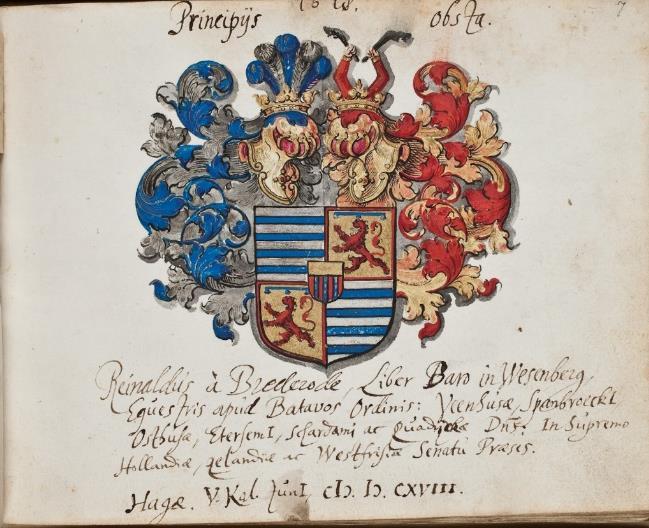 1618.
Principÿs obsta.
7
Reinaldus à Brederode, Liber Baro in Wesenberg,
Equestris apud Batavos Ordinis: Veenhusæ, Spanbroeckl
Osthusæ, Etersemi, Schardami ac Quadÿckæ Dns. In Supremo
Hollandiæ, Zelandiæ ac Westfrisiæ Senatu Præses.
Hagæ. V. Kal. Junl. cIↃ. IↃ. CXVIII.